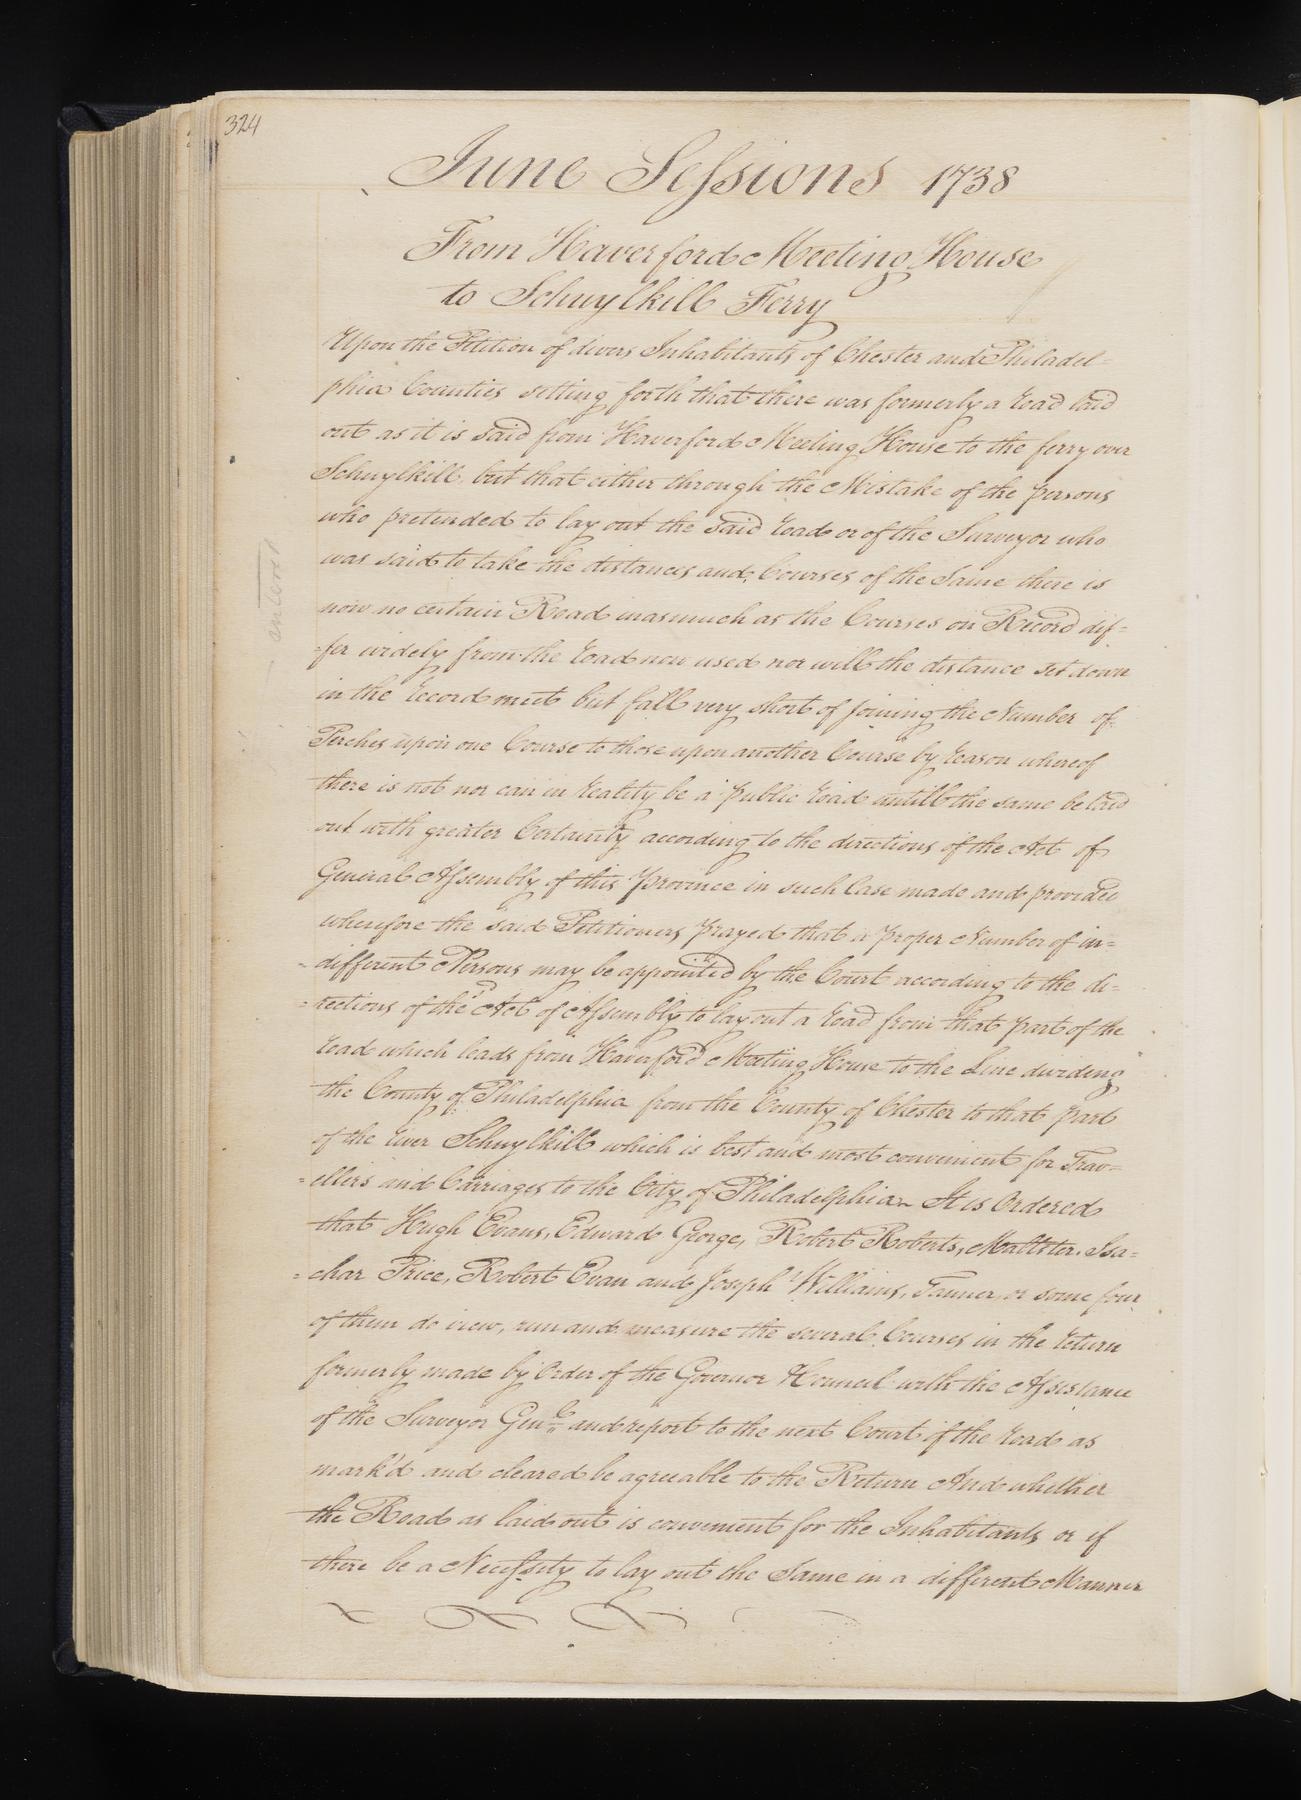 324
June Sessions 1738
From Haverford Meeting House
to Schuylkill Ferry
Upon the Petition of divers Inhabitants of Chester and Philadel=
phia Counties setting forth that there was formerly a road laid
out as it is said from Haverford Meeting House to the ferry over
Schuylkill but that either through the Mistake of the persons
who pretended to lay out the said road or of the Surveyor who
was said to take the distances and Courses of the Same there is
now no certain Road inasmuch as the Courses on Record dif=
=fer widely from the road now used nor will the distance set down
in the record meet but fall very short of joining the Number of
Perches upon one Course to those upon another Course by reason whereof
there is not nor can in reality be a public road untill the same be laid
out with greater Certainty according to the directions of the Act of
General Assembly of this province in such Case made and provided
wherefore the said Petitioners prayed that a proper Number of in=
=different Persons may be appointed by the Court according to the di=
=rections of the sd Act of Assembly to lay out a road from that part of the
road which leads from Haverford Meeting House to the Line dividing
the County of Philadelphia from the County of Chester to that part
of the river Schuylkill which is best and most convenient for Trav=
=ellers and Carriages to the City of Philadelphia It is Ordered
that Hugh Evans, Edward George, Robert Roberts, Maltster, Isa=
=char Price, Robert Evan and Joseph Williams, Tanner, or some four
of them do view, run and measure the several Courses in the return
formerly made by Order of the Governor & Council with the Assistance
of the Surveyor Genl. and report to the next Court if the road as
mark'd and cleared be agreeable to the Return And whether
the Road as laid out is convenient for the Inhabitants or if
there be a Necessity to lay out the Same in a different Manner
entered